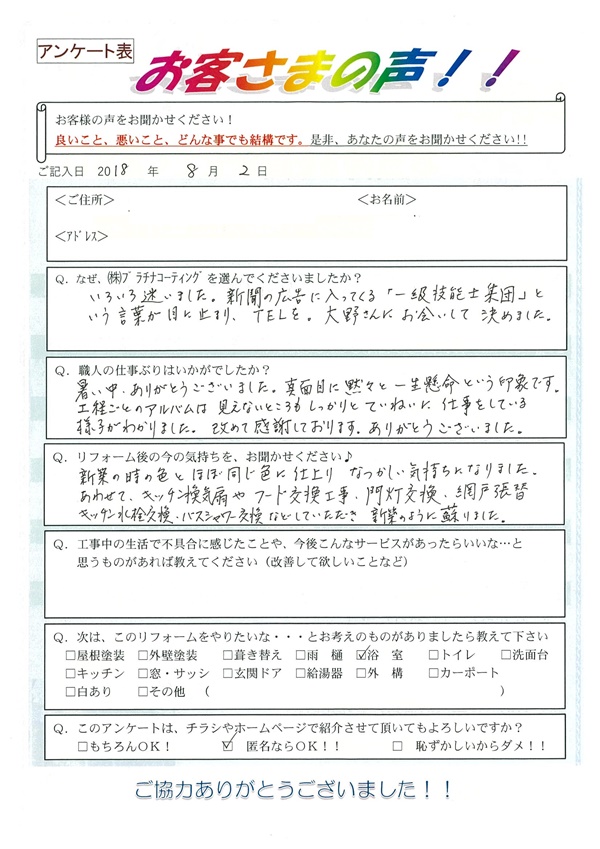 アンケート表
お客さまの声！！
お客様の声をお聞かせください！
良いこと、悪いこと、どんな事でも結構です。是非、あなたの声をお聞かせください!!
ご記入日 2018 年 8 月 2 日
＜ご住所＞ ＜お名前＞
＜ｱﾄﾞﾚｽ＞
Q．なぜ、㈱ﾌﾟﾗﾁﾅｺｰﾃｨﾝｸﾞを選んでくださいましたか？
いろいろ迷いました。新聞の広告に入ってくる「一級技能士集団」と
いう言葉が目に止まり、TELを。大野さんにお会いして決めました。
Q．職人の仕事ぶりはいかがでしたか？
暑い中、ありがとうございました。真面目に黙々と一生懸命という印象です。
工程ごとのアルバムは見えないところもしっかりとていねいに仕事をしている
様子がわかりました。改めて感謝しております。ありがとうございました。
Q．リフォーム後の今の気持ちを、お聞かせください♪
新築の時の色とほぼ同じ色に仕上り なつかしい気持ちになりました。
あわせて、キッチン換気扇やフード交換工事、門灯交換、網戸張替
キッチン水栓交換・バスシャワー交換などしていただき 新築のように蘇りました。
Q．工事中の生活で不具合に感じたことや、今後こんなサービスがあったらいいな…と
思うものがあれば教えてください（改善して欲しいことなど）
Q．次は、このリフォームをやりたいな・・・とお考えのものがありましたら教えて下さい
□屋根塗装 □外壁塗装 □葺き替え □雨 樋 ☑浴 室 □トイレ □洗面台
□キッチン □窓・サッシ □玄関ドア □給湯器 □外 構 □カーポート
□白あり □その他 （ ）
Q．このアンケートは、チラシやホームページで紹介させて頂いてもよろしいですか？
□もちろんOK！ ☑ 匿名ならOK！！ □ 恥ずかしいからダメ！！
ご協力ありがとうございました！！